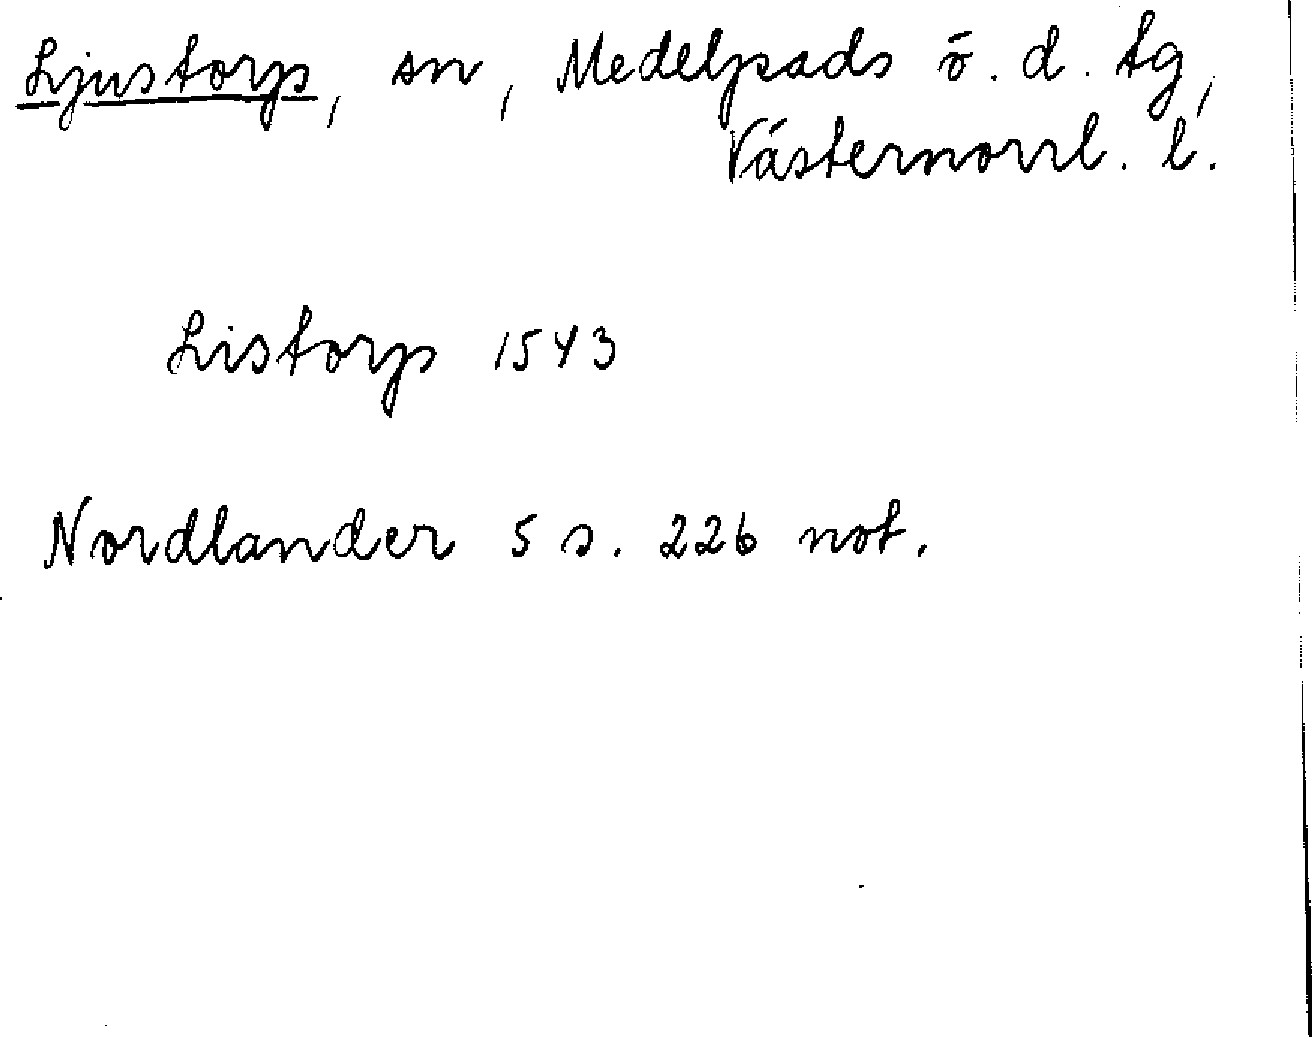 Ljustorp, sn, Medelpads ö. d. tg,
Västernorrl. l.
Listorp 1543
Nordlander 5 s. 226 not.